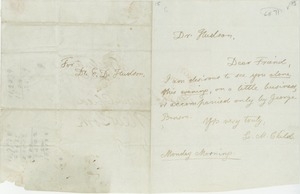 For
Dr. E. D. Hudson
Dr Hudson.
Dear Friend,
I am desirous to see you alone
this evening, on a little business,
& accompanied only by George
Benson.
Yrs very truly,
Monday Morning.